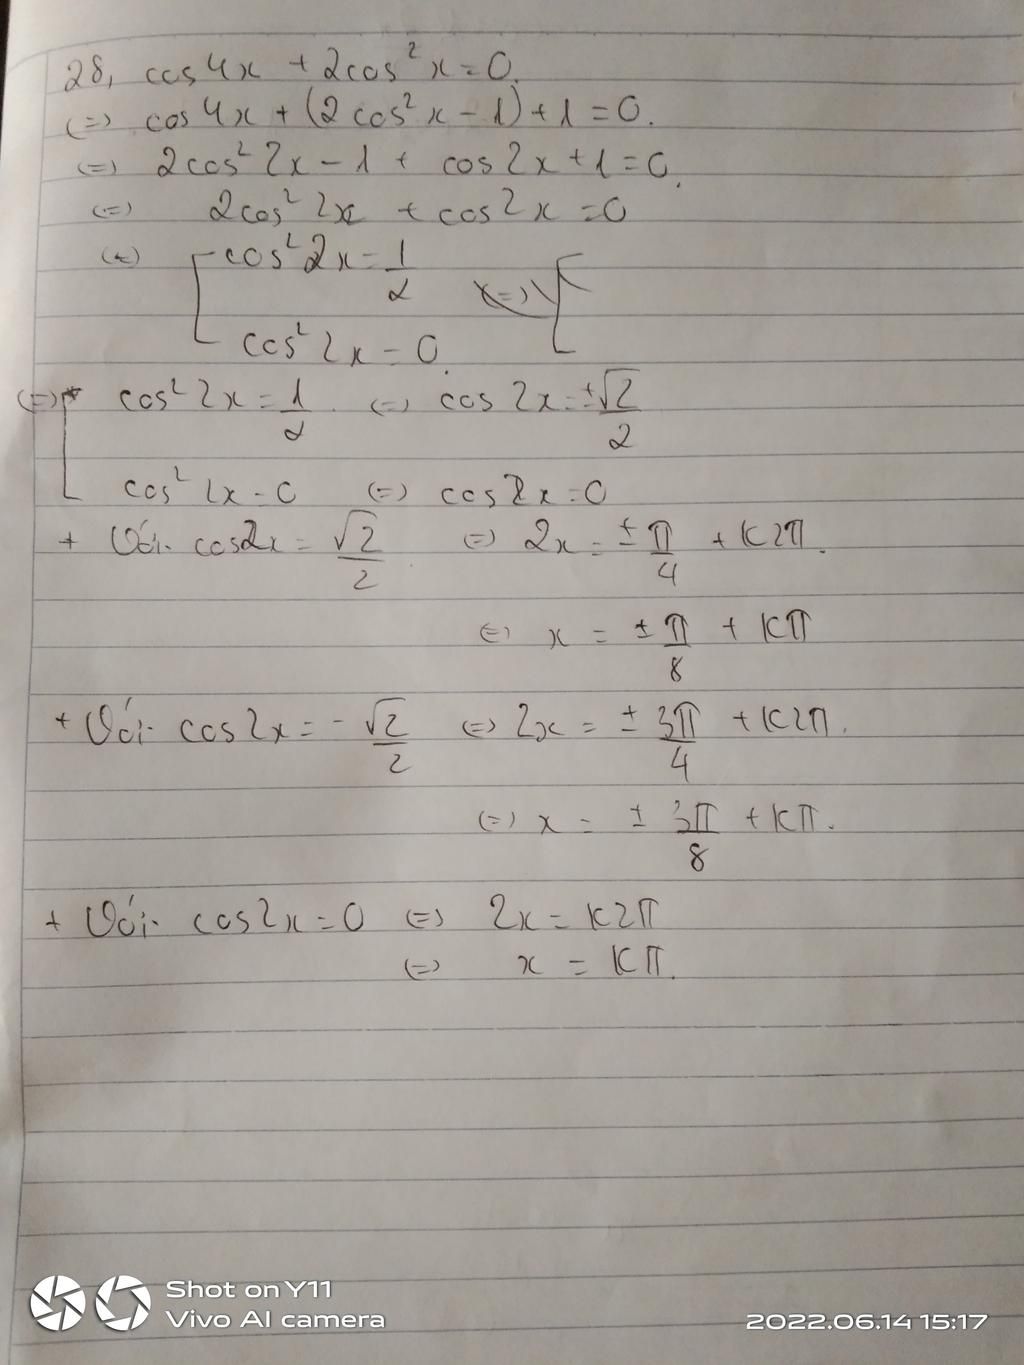 28, cos4x + 2cos²x = 0.
(=) cos4x + (2cos²x - 1) + 1 = 0.
(=) 2cos²2x - 1 + cos2x + 1 = 0.
(=) 2cos²2x + cos2x = 0
(=) [ cos²2x = 1/2 (=) [
cos²2x = 0.
(=) [ * cos²2x = 1/2 . (=) cos2x = ±√2/2
cos²2x = 0 (=) cos2x = 0
+ Với cos2x = √2/2 (=) 2x = ±π/4 + k2π.
(=) x = ±π/8 + kπ
+ Với cos2x = -√2/2 (=) 2x = ±3π/4 + k2π.
(=) x = ±3π/8 + kπ.
+ Với cos2x = 0 (=) 2x = k2π
(=) x = kπ.
Shot on Y11
Vivo AI camera
2022.06.14 15:17